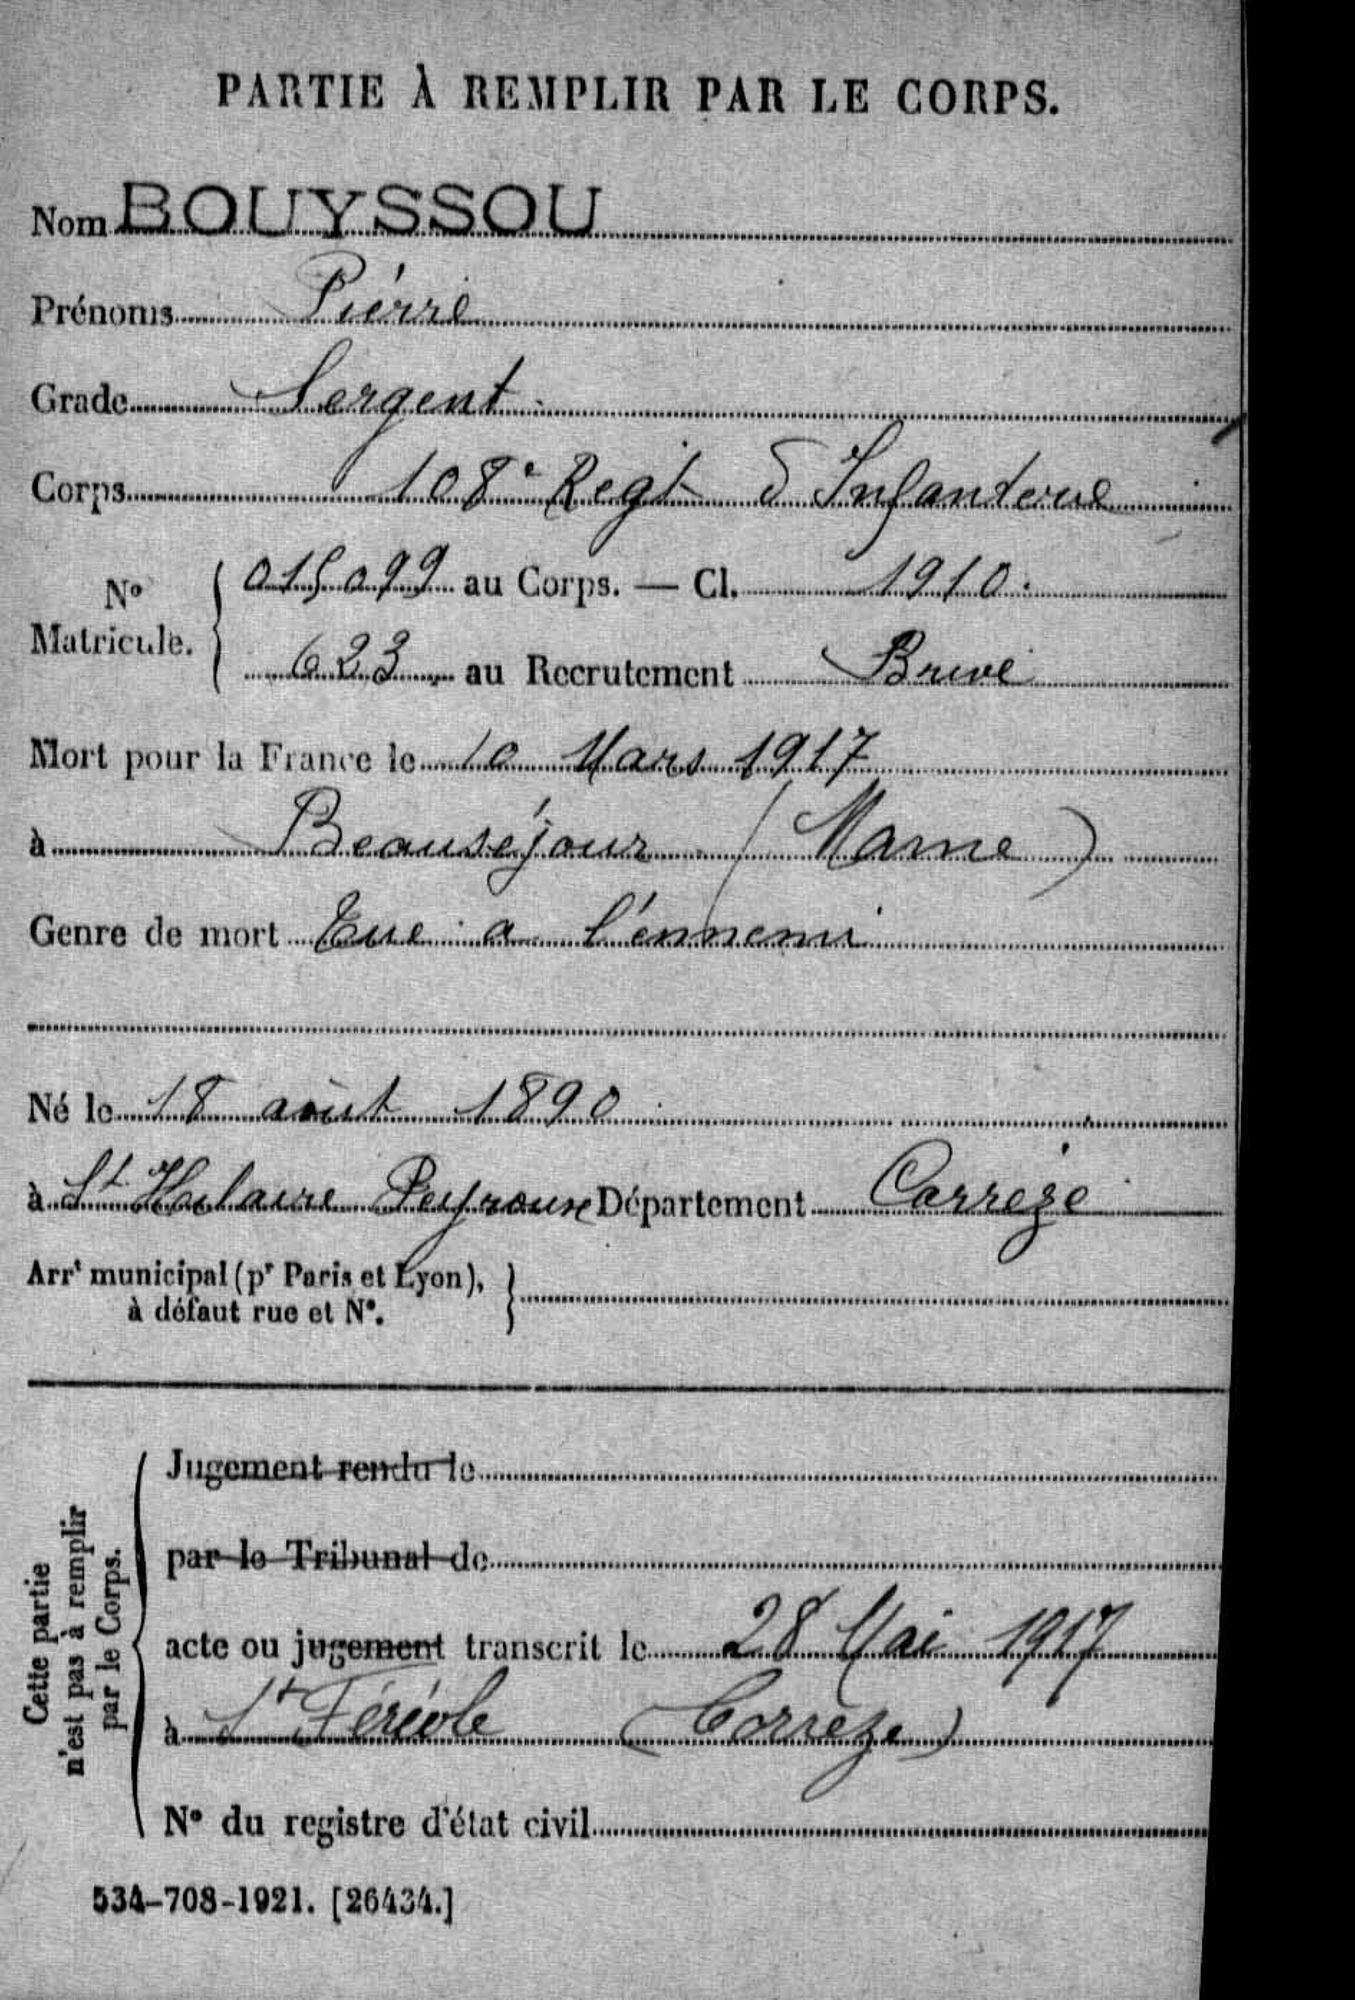 PARTIE À REMPLIR PAR LE CORPS.
Nom BOUYSSOU
Prénoms Pierre
Grade Sergent
Corps 108e Regt d'Infanterie
No Matricule. { 015099 au Corps. — Cl. 1910.
623 au Recrutement Brive
Mort pour la France le 10 Mars 1917
à Beauséjour (Marne)
Genre de mort Tué a l'ennemi
Né le 18 août 1890
à St Hilaire Peyroux Département Corrèze
Arrt municipal (pr Paris et Lyon), }
à défaut rue et No.
Cette partie
n'est pas à remplir
par le Corps.
Jugement rendu le
par le Tribunal de
acte ou jugement transcrit le 28 Mai 1917
à St Féréole (Corrèze)
No du registre d'état civil
534-708-1921. [26434.]